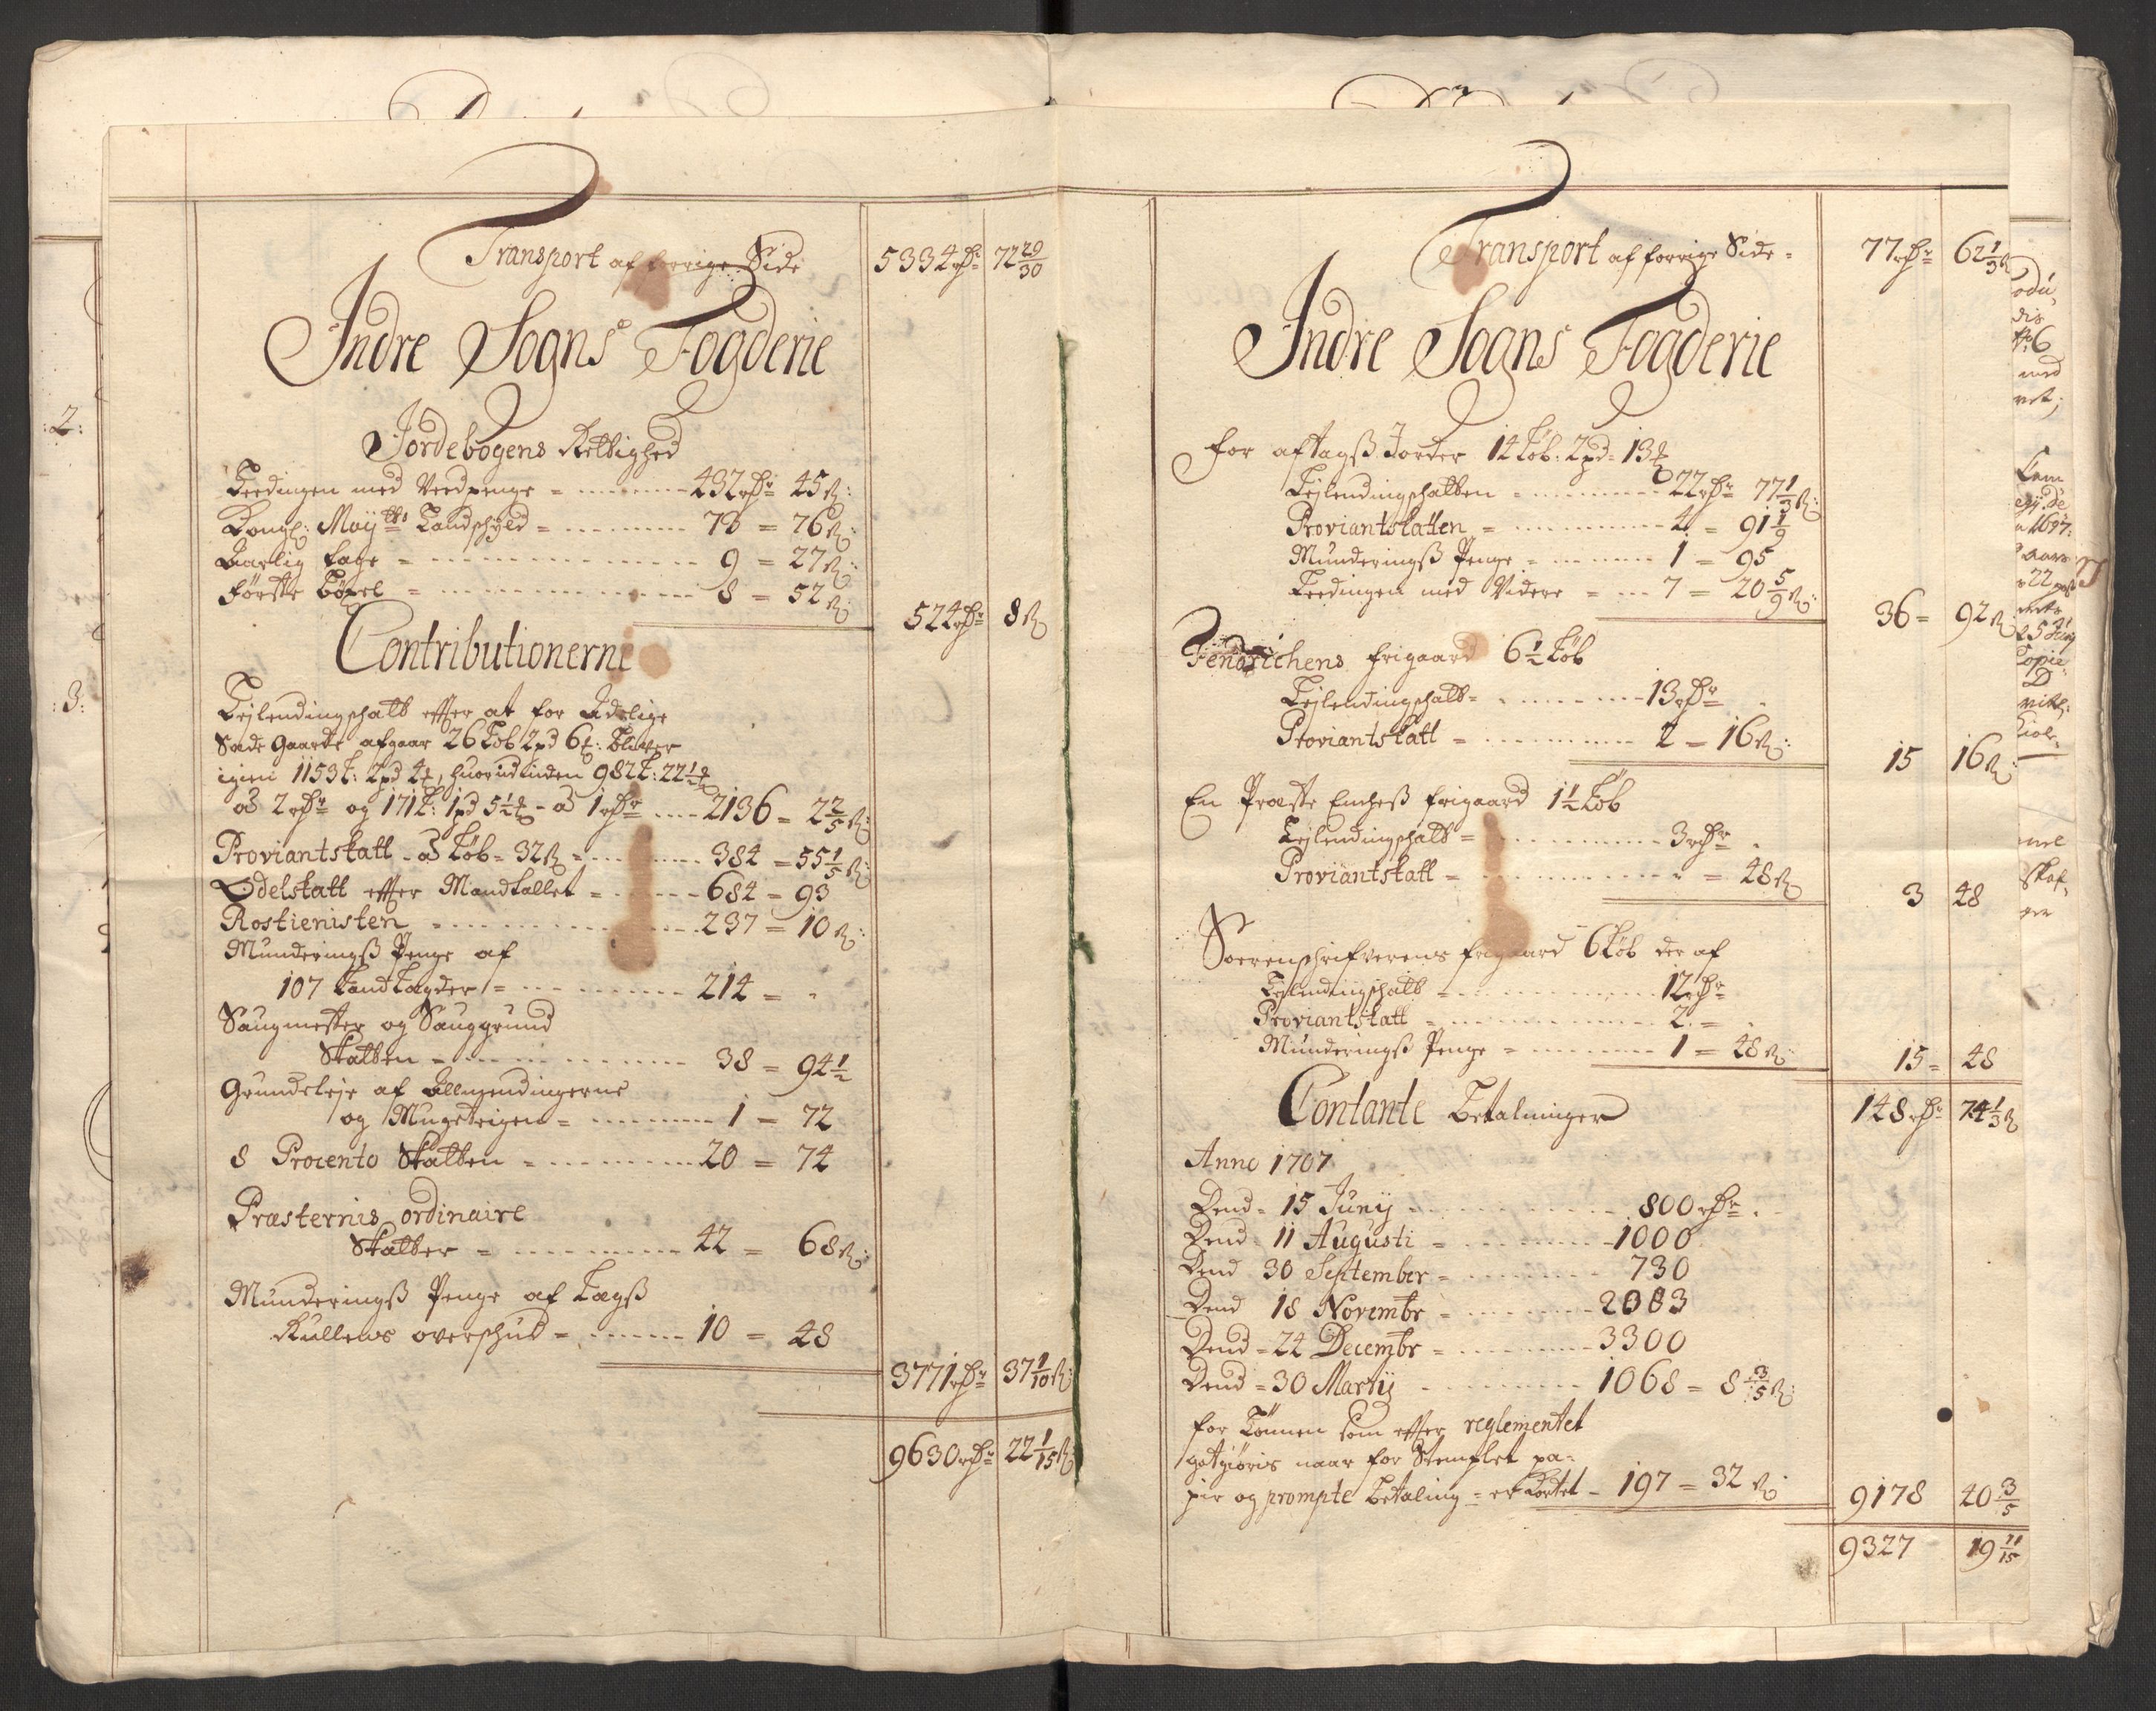 Transport af forrige Side 5334 rdr 72 29/30
Indre Sogns Fogderie
Jordebogens Rettighed
Leedingen med Veedpenge = 432 rdr 45 ß:
Kongl: Mayts Landskyld = 73 = 76 ß:
Aarlig tage = 9 = 27 ß:
Første Bøxel = 8 = 52 ß:
524 rdr 8 ß
Contributionerne
Lejlendingschatt effter at for Adelige
Sæde Gaarde afgaar 26 Løb 2 pd 6 : bliver
igien 1153 L: 2 pd 4 , huorudinden 982 L: 22 1/2
á 2 rdr og 171 L: 1 pd 5 1/2 - á 1 rdr 2136 = 2 2/5 ß:
Proviantskatt - á Løb = 32 ß = 384 = 55 1/5 ß:
Odelskatt effter Mandtallet = 684 = 93
Rostienisten 237 = 10 ß:
Munderingß Penge af
107 Land Lægder = 214 =
Saugmester og Sauggrund
Skatten = 38 = 94 1/2
Grundeleje af Allmendingerne
og = 1 = 72
8 Procento Skatten = 20 = 74
Præsternis ordinaire
Skatter = 42 = 68 ß:
Munderingß Penge af Lægß
Rullens overschud = 10 = 48
3771 rdr 37 1/10 ß:
9630 rdr 22 1/15 ß
Transport af forrige Side = 77 rdr 62 1/3 ß
Indre Sogns Fogderie
For aftagß Jorder 14 Løb: 2 pd = 13
Lejlendingschatten = 22 rdr 77 1/3 ß:
Proviantskatten = 4 = 91 1/9
Munderingß Penge = 1 = 95
Leedingen med Videre = 7 = 20 5/9 ß:
36 = 92 ß:
Fendrichens frigaard 6 1/2 Løb
Lejlendingschatt = 13 rdr
Proviantskatt = 2 = 16 ß:
15 16 ß:
En Præste Enches frigaard 1 1/2 Løb
Lejlendingschatt = 3 rdr
Proviantskatt = 48 ß
3 48
Soerenschrifverens frigaard 6 Løb der af
Lejlendingschatt = 12 rdr
Proviantskatt = 2 =
Munderingß Penge = 1 = 48 ß:
15 = 48
Contante Betalninger 148 rdr 74 1/3 ß
Anno 1707
Dend = 15 Junij 800 rdr
Dend = 11 Augusti = 1000
Dend 30 September = 730
Dend 18 Novembr = 2083
Dend = 24 Decembr = 3300
Dend = 30 Martij 1068 = 8 3/5 ß:
For Tønnen som effter reglementet
gotgiøris naar for Stemplet pa-
pir og prompte Betaling = er - 197 = 32 ß 9178 40 3/5
9327 19 11/15
:2:
:3: